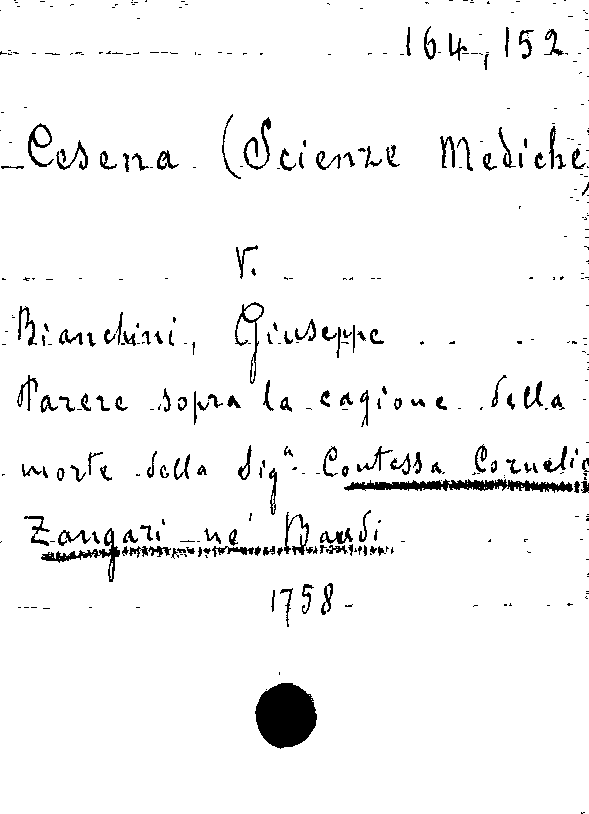 164,152
Cesena (Scienze Mediche)
V.
Bianchini, Giuseppe
Parere sopra la cagione della
morte della Sigª Contessa Cornelia
Zangari ne' Bandi
1758